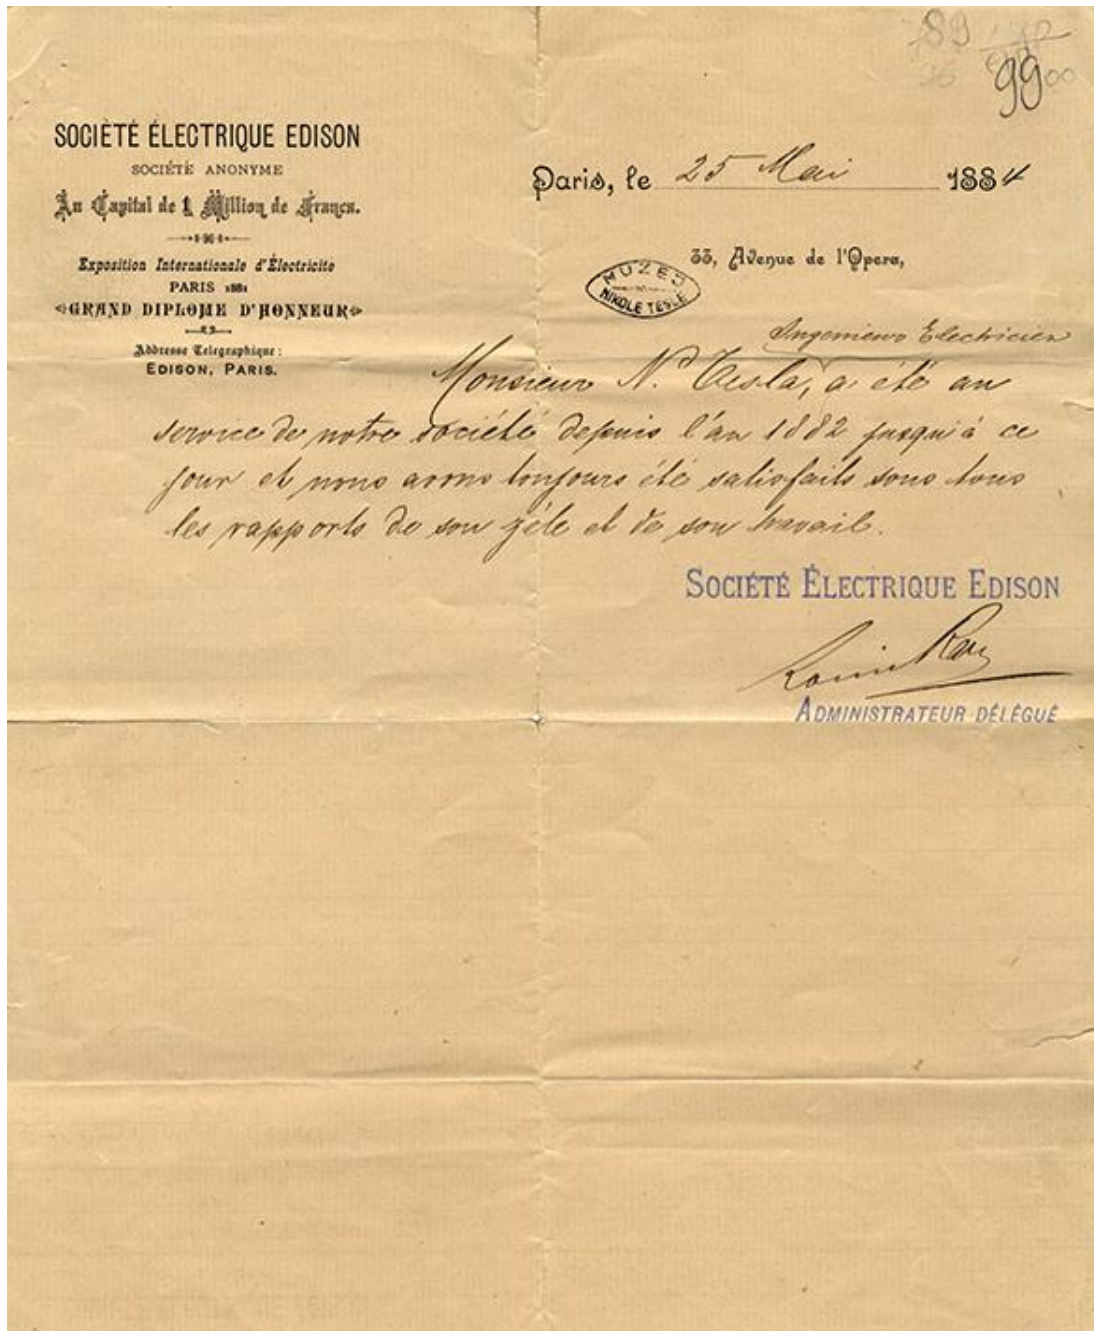 99
SOCIÉTÉ ÉLECTRIQUE EDISON
SOCIÉTÉ ANONYME
Au Capital de 1 Million de Francs.
Exposition Internationale d'Électricité
PARIS 1881
GRAND DIPLOME D'HONNEUR
Addresse Telegraphique :
EDISON, PARIS.
Paris, le 25 Mai 1884
33, Avenue de l'Opera,
MUZEJ
NIKOLE TESLE
Ingenieur Electricien
Monsieur N. Tesla, a été au
service de notre société depuis l'an 1882 jusqu'à ce
jour et nous avons toujours été satisfaits sous tous
les rapports de son zéle et de son travail.
SOCIÉTÉ ÉLECTRIQUE EDISON
ADMINISTRATEUR DÉLÉGUÉ